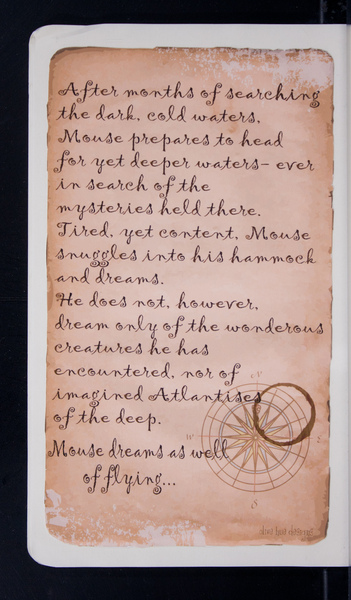 After months of searching
the dark, cold waters,
Mouse prepares to head
for yet deeper waters- ever
in search of the
mysteries held there.
Tired, yet content, Mouse
snuggles into his hammock
and dreams.
He does not, however,
dream only of the wonderous
creatures he has
encountered, nor of
imagined Atlantises
of the deep.
Mouse dreams as well
of flying...
N
W
S